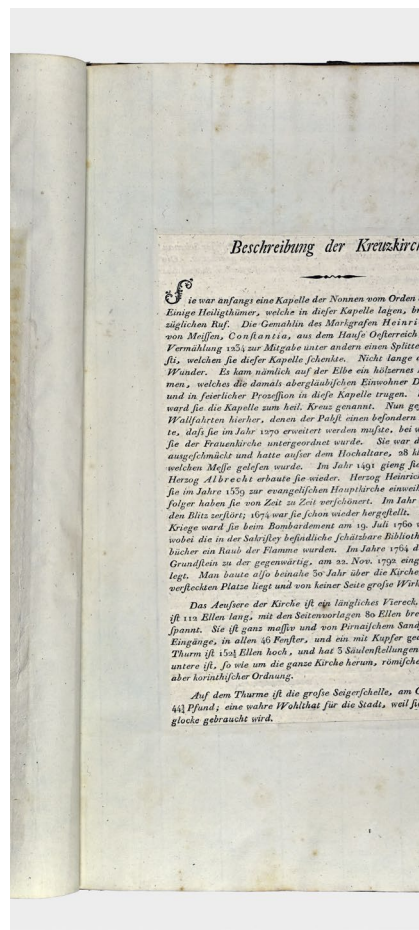 Beschreibung der Kreuzkirch
Sie war anfangs eine Kapelle der Nonnen vom Orden
Einige Heiligthümer, welche in dieſer Kapelle lagen, br
züglichen Ruf. Die Gemahlin des Markgrafen Heinri
von Meiſſen, Conſtantia, aus dem Hauſe Oeſterreich
Vermählung 1234 zur Mitgabe unter andern einen Splitte
ſti, welchen ſie dieſer Kapelle ſchenkte. Nicht lange
Wunder. Es kam nämlich auf der Elbe ein hölzernes
men, welches die damals abergläubiſchen Einwohner D
und in feierlicher Prozeſſion in dieſe Kapelle trugen.
ward ſie die Kapelle zum heil. Kreuz genannt. Nun ge
Wallfahrten hierher, denen der Pabſt einen beſondern
te, daſs ſie im Jahr 1270 erweitert werden muſste, bei w
ſie der Frauenkirche untergeordnet wurde. Sie war d
ausgeſchmückt und hatte auſser dem Hochaltare, 28 kl
welchen Meſſe geleſen wurde. Im Jahr 1491 gieng ſie
Herzog Albrecht erbaute ſie wieder. Herzog Heinric
ſie im Jahre 1539 zur evangeliſchen Hauptkirche einweih
folger haben ſie von Zeit zu Zeit verſchönert. Im Jahr
den Blitz zerſtört; 1674 war ſie ſchon wieder hergeſtellt.
Kriege ward ſie beim Bombardement am 19. Juli 1760
wobei die in der Sakriſtey befindliche ſchätzbare Biblioth
bücher ein Raub der Flamme wurden. Im Jahre 1764 d
Grundſtein zu der gegenwärtig, am 22. Nov. 1792 eing
legt. Man baute alſo beinahe 30 Jahr über die Kirche
verſteckten Platze liegt und von keiner Seite groſse Wirk
Das Aeuſsere der Kirche iſt ein längliches Viereck.
iſt 112 Ellen lang, mit den Seitenvorlagen 80 Ellen bre
ſpannt. Sie iſt ganz maſſiv und von Pirnaiſchem Sand
Eingänge, in allen 46 Fenſter, und ein mit Kupfer ged
Thurm iſt 152½ Ellen hoch, und hat 3 Säulenſtellungen
untere iſt, ſo wie um die ganze Kirche herum, römiſche
aber korinthiſcher Ordnung.
Auf dem Thurme iſt die groſse Seigerſchelle, am
Pfund; eine wahre Wohlthat für die Stadt, weil ſi
glocke gebraucht wird.